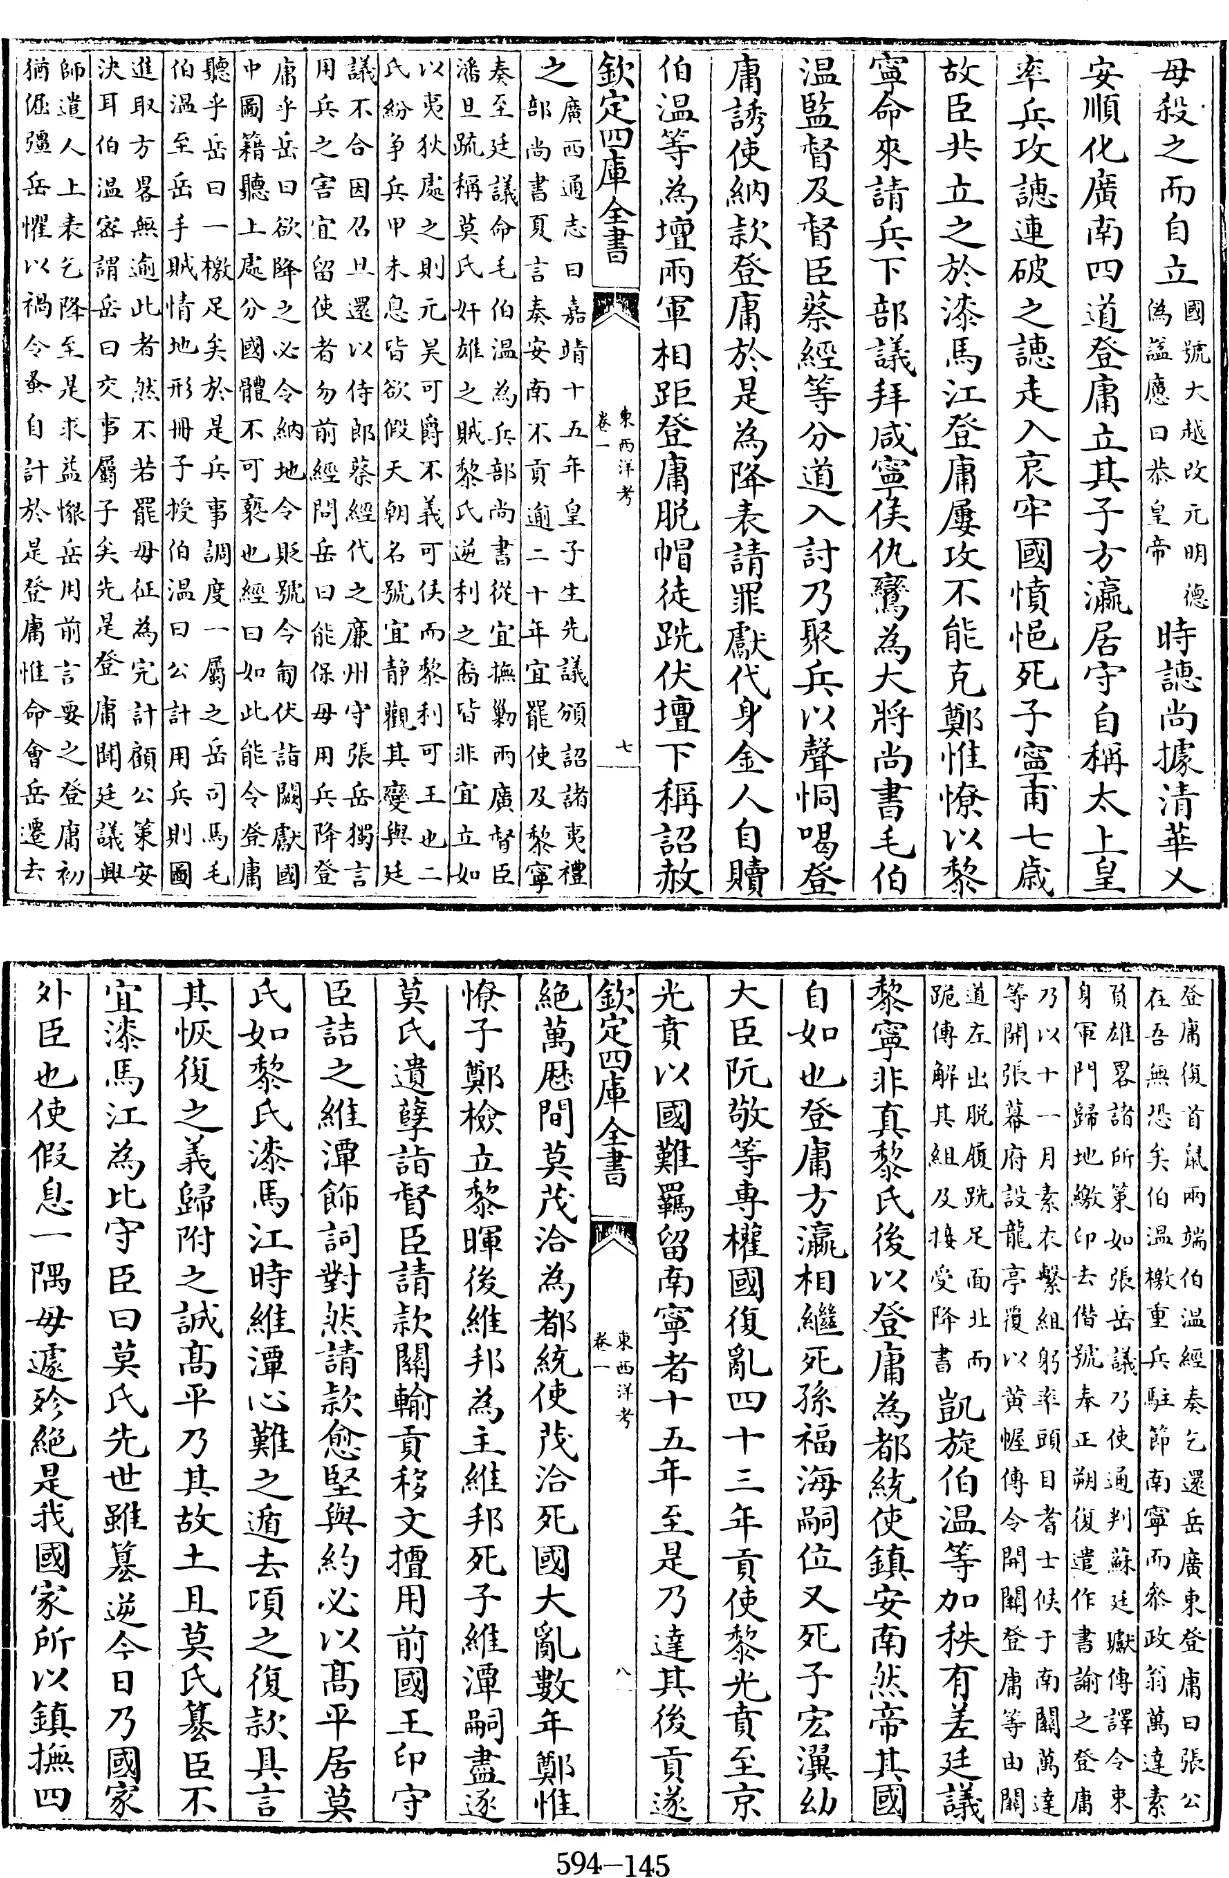 毋殺之而自立國號大越改元明德
偽諡應曰恭皇帝時譓尚據清華乂
安順化廣南四道登庸立其子方瀛居守自稱太上皇
率兵攻譓連破之譓走入哀牢國憤悒死子寧甫七歲
故臣共立之於漆馬江登庸屢攻不能克鄭惟憭以黎
寧命來請兵下部議拜咸寧侯仇鸞為大將尚書毛伯
溫監督及督臣蔡經等分道入討乃聚兵以聲恫喝登
庸誘使納款登庸於是為降表請罪獻代身金人自贖
伯溫等為壇兩軍相距登庸脱帽徒跣伏壇下稱詔赦
欽定四庫全書
東西洋考
卷一
七
之
廣西通志曰嘉靖十五年皇子生先議頒詔諸夷禮
部尚書夏言奏安南不貢逾二十年宜罷使及黎寧
奏至廷議命毛伯溫為兵部尚書從宜撫勦兩廣督臣
潘旦疏稱莫氏奸雄之賊黎氏逆利之裔皆非宜立如
以夷狄處之則元昊可爵不義可侯而黎利可王也二
氏紛争兵甲未息皆欲假天朝名號宜静觀其變與廷
議不合因召旦還以侍郎蔡經代之廉州守張岳獨言
用兵之害宜留使者勿前經問岳曰能保毋用兵降登
庸乎岳曰欲降之必令納地令貶號令匍伏詣闕獻國
中圖籍聽上處分國體不可褻也經曰如此能令登庸
聽乎岳曰一檄足矣於是兵事調度一屬之岳司馬毛
伯溫至岳手賊情地形冊子授伯溫曰公計用兵則圖
進取方畧無逾此者然不若罷毋征為完計顧公策安
決耳伯溫密謂岳曰交事屬子矣先是登庸聞廷議興
師遣人上表乞降至是求益懇岳用前言要之登庸初
猶倔彊岳懼以禍令蚤自計於是登庸惟命會岳遷去
登庸復首鼠兩端伯溫經奏乞還岳廣東登庸曰張公
在吾無恐矣伯溫檄重兵駐節南寧而叅政翁萬達素
負雄畧諸所策如張岳議乃使通判蘇廷瓛傳譯令束
身軍門歸地繳印去僭號奉正朔復遣作書諭之登庸
乃以十一月素衣繫組躬率頭目耆士候于南關萬達
等開張幕府設龍亭覆以黄幄傳令開關登庸等由關
道左出脱履跣足面北而
跪傳解其組及接受降書凱旋伯溫等加秩有差廷議
黎寧非真黎氏後以登庸為都統使鎮安南然帝其國
自如也登庸方瀛相繼死孫福海嗣位又死子宏瀷幼
大臣阮敬等專權國復亂四十三年貢使黎光賁至京
光賁以國難羈留南寧者十五年至是乃達其後貢遂
欽定四庫全書
東西洋考
卷一
八
絶萬厯間莫茂洽為都統使茂洽死國大亂數年鄭惟
憭子鄭檢立黎暉後維邦為主維邦死子維潭嗣盡逐
莫氏遺孽詣督臣請款關輸貢移文擅用前國王印守
臣詰之維潭飾詞對然請款愈堅與約必以髙平居莫
氏如黎氏漆馬江時維潭心難之遁去頃之復款具言
其恢復之義歸附之誠髙平乃其故土且莫氏簒臣不
宜漆馬江為比守臣曰莫氏先世雖簒逆今日乃國家
外臣也使假息一隅毋遽殄絶是我國家所以鎮撫四
594-145